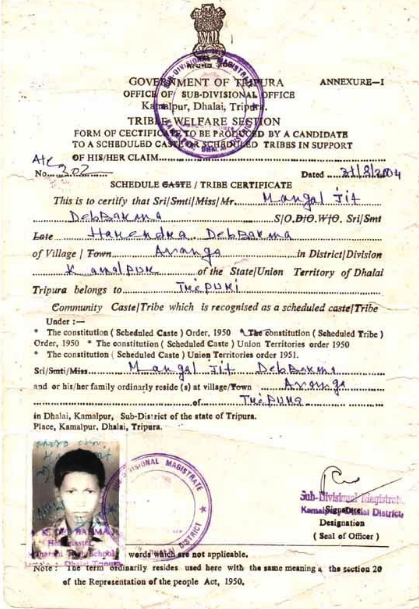 GOVERNMENT OF TRIPURA ANNEXURE—I
OFFICE OF SUB-DIVISIONAL OFFICE
Kamalpur, Dhalai, Tripura.
TRIBE WELFARE SECTION
FORM OF CECTIFICATE TO BE PRODUCED BY A CANDIDATE
TO A SCHEDULED CASTE OR SCHEDULED TRIBES IN SUPPORT
OF HIS/HER CLAIM
No. 302 Dated 31/8/2004
SCHEDULE CASTE / TRIBE CERTIFICATE
This is to certify that Sri/Smti/Miss/Mr. Mangal Jit
DebBarma S/O.D/O.W/O. Sri/Smt
Late Harendra DebBarma
of Village / Town Avanga in District/Division
Kamalpur of the State/Union Territory of Dhalai
Tripura belongs to Tripuri
Community Caste/Tribe which is recognised as a scheduled caste/Tribe
Under :—
* The constitution ( Scheduled Caste ) Order, 1950 * The constitution ( Scheduled Tribe )
Order, 1950 * The constitution ( Scheduled Caste ) Union Territories order 1950
* The constitution ( Scheduled Caste ) Union Territories order 1951.
Sri/Smti/Miss Mangal Jit DebBarma
and or his/her family ordinarly reside (s) at village/Town Avanga
of Tripura
in Dhalai, Kamalpur, Sub-District of the state of Tripura.
Place, Kamalpur, Dhalai, Tripura.
SUB-DIVISIONAL MAGISTRATE
DISTRICT
Sub-Divisional Magistrate
Kamalpur, Dhalai District
Signature
Designation
( Seal of Officer )
words which are not applicable.
Note : The term ordinarily resides used here with the same meaning a the section 20
of the Representation of the people Act, 1950.